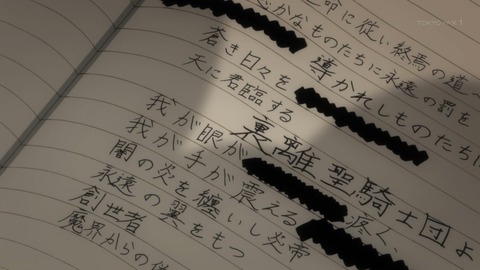 TOKYO MX 1
命に従い終焉の道
かなものたちに永遠の罰を
蒼き日々を 導かれしものたちに
天に君臨する
裏離聖騎士団よ
我が眼が 疼く、
我が手が震える
闇の炎を纏いし炎帝
永遠の翼をもつ
創世者
魔界からの使